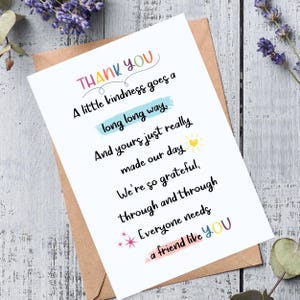 THANK YOU
A little kindness goes a
long long way,
And yours just really
made our day
We're so grateful,
through and through
Everyone needs
a friend like YOU